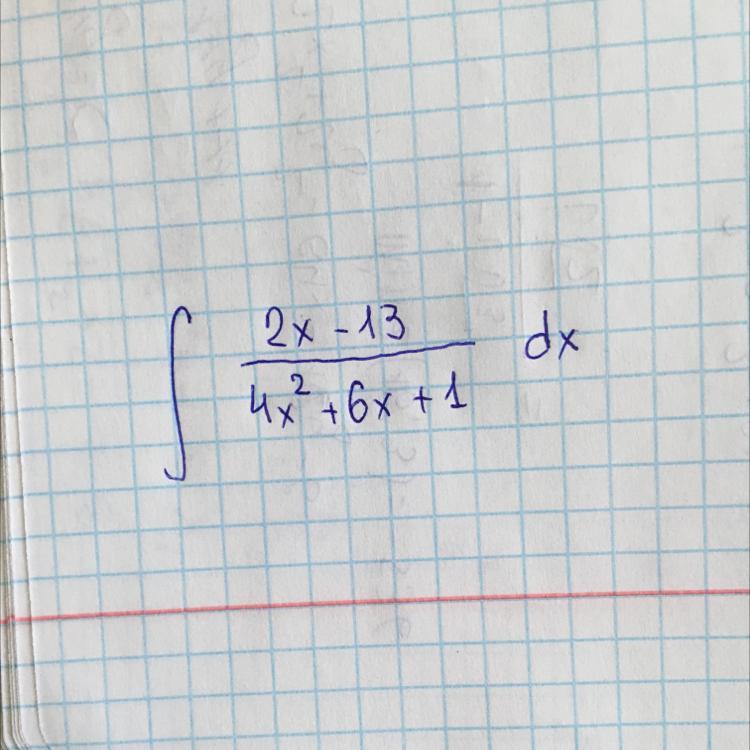 ∫ (2x - 13)/(4x² + 6x + 1) dx